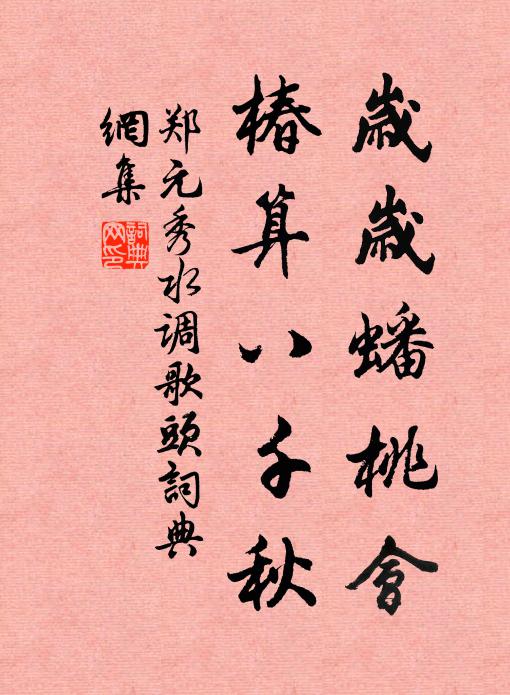 歲歲蟠桃會
椿算八千秋
郑元秀水调歌頭詞典
網集
詞典
网印